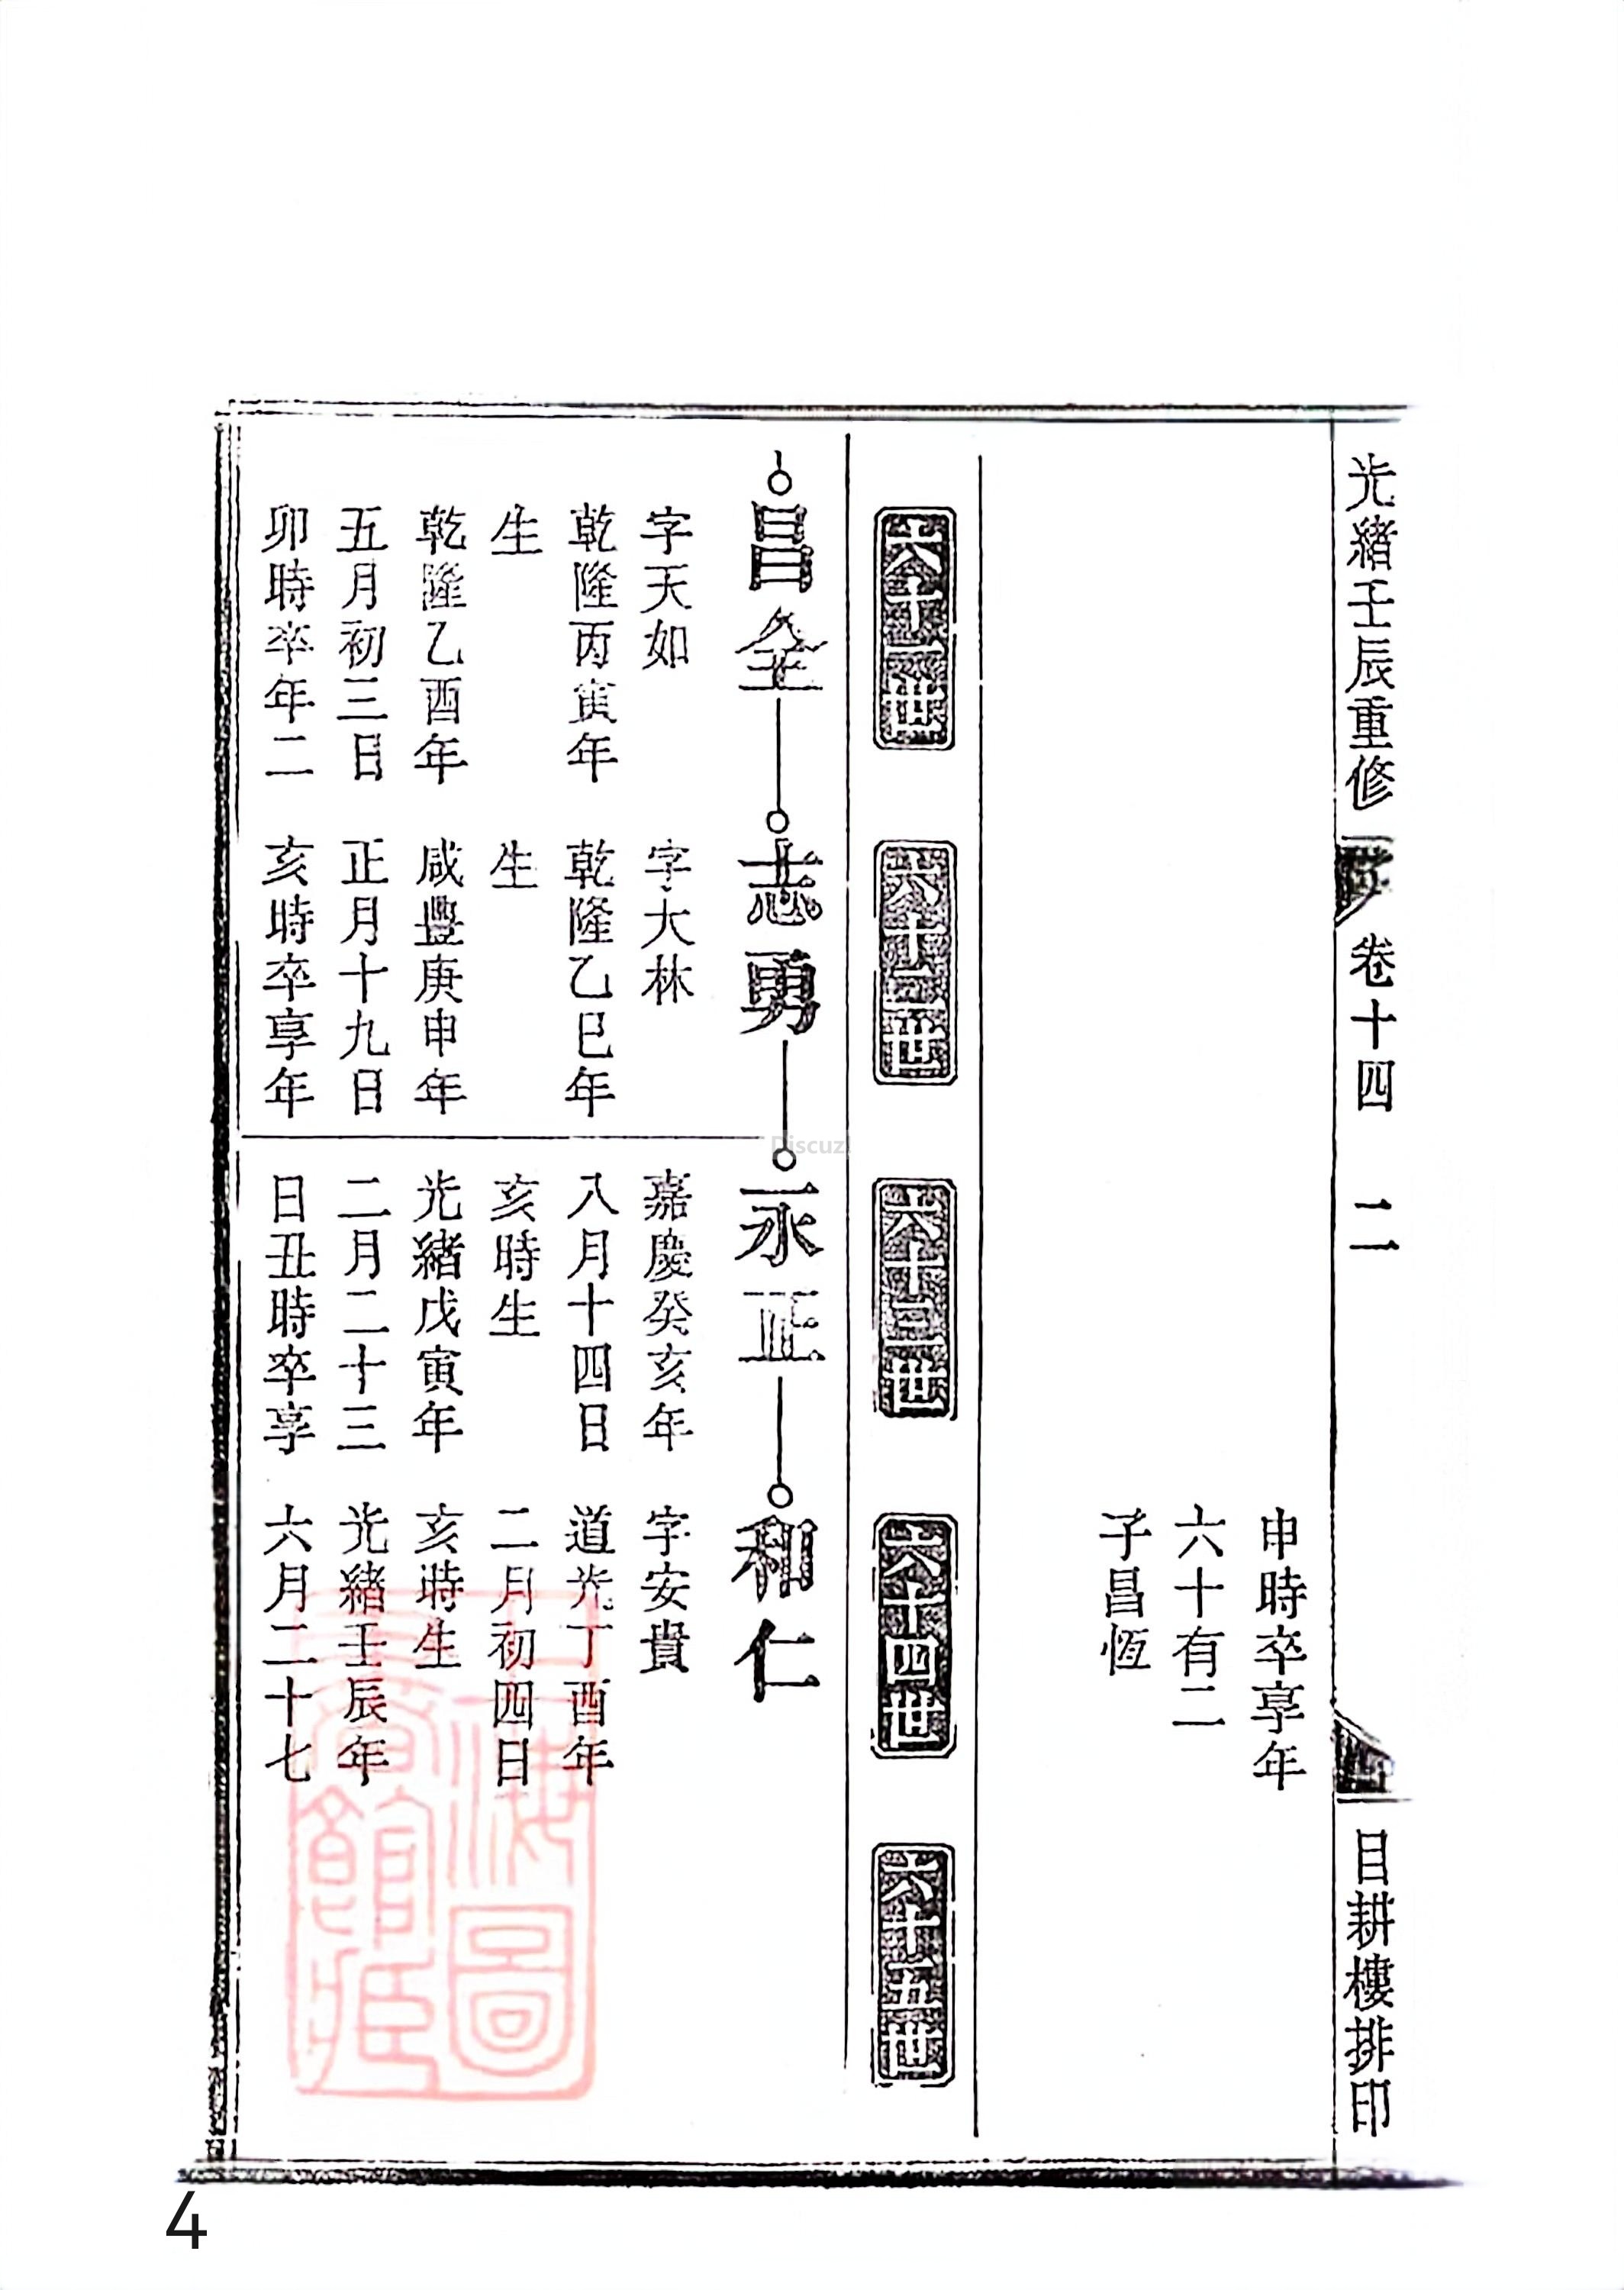 光緒壬辰重修
卷十四
二
目耕樓排印
申時卒享年
六十有二
子昌恆
六十一世
六十二世
六十三世
六十四世
六十五世
昌全
志勇
永正
和仁
字天如
乾隆丙寅年
生
乾隆乙酉年
五月初三日
卯時卒年二
字大林
乾隆乙巳年
生
咸豐庚申年
正月十九日
亥時卒享年
嘉慶癸亥年
八月十四日
亥時生
光緒戊寅年
二月二十三
日丑時卒享
字安貴
道光丁酉年
二月初四日
亥時生
光緒壬辰年
六月二十七
Discuz!
4